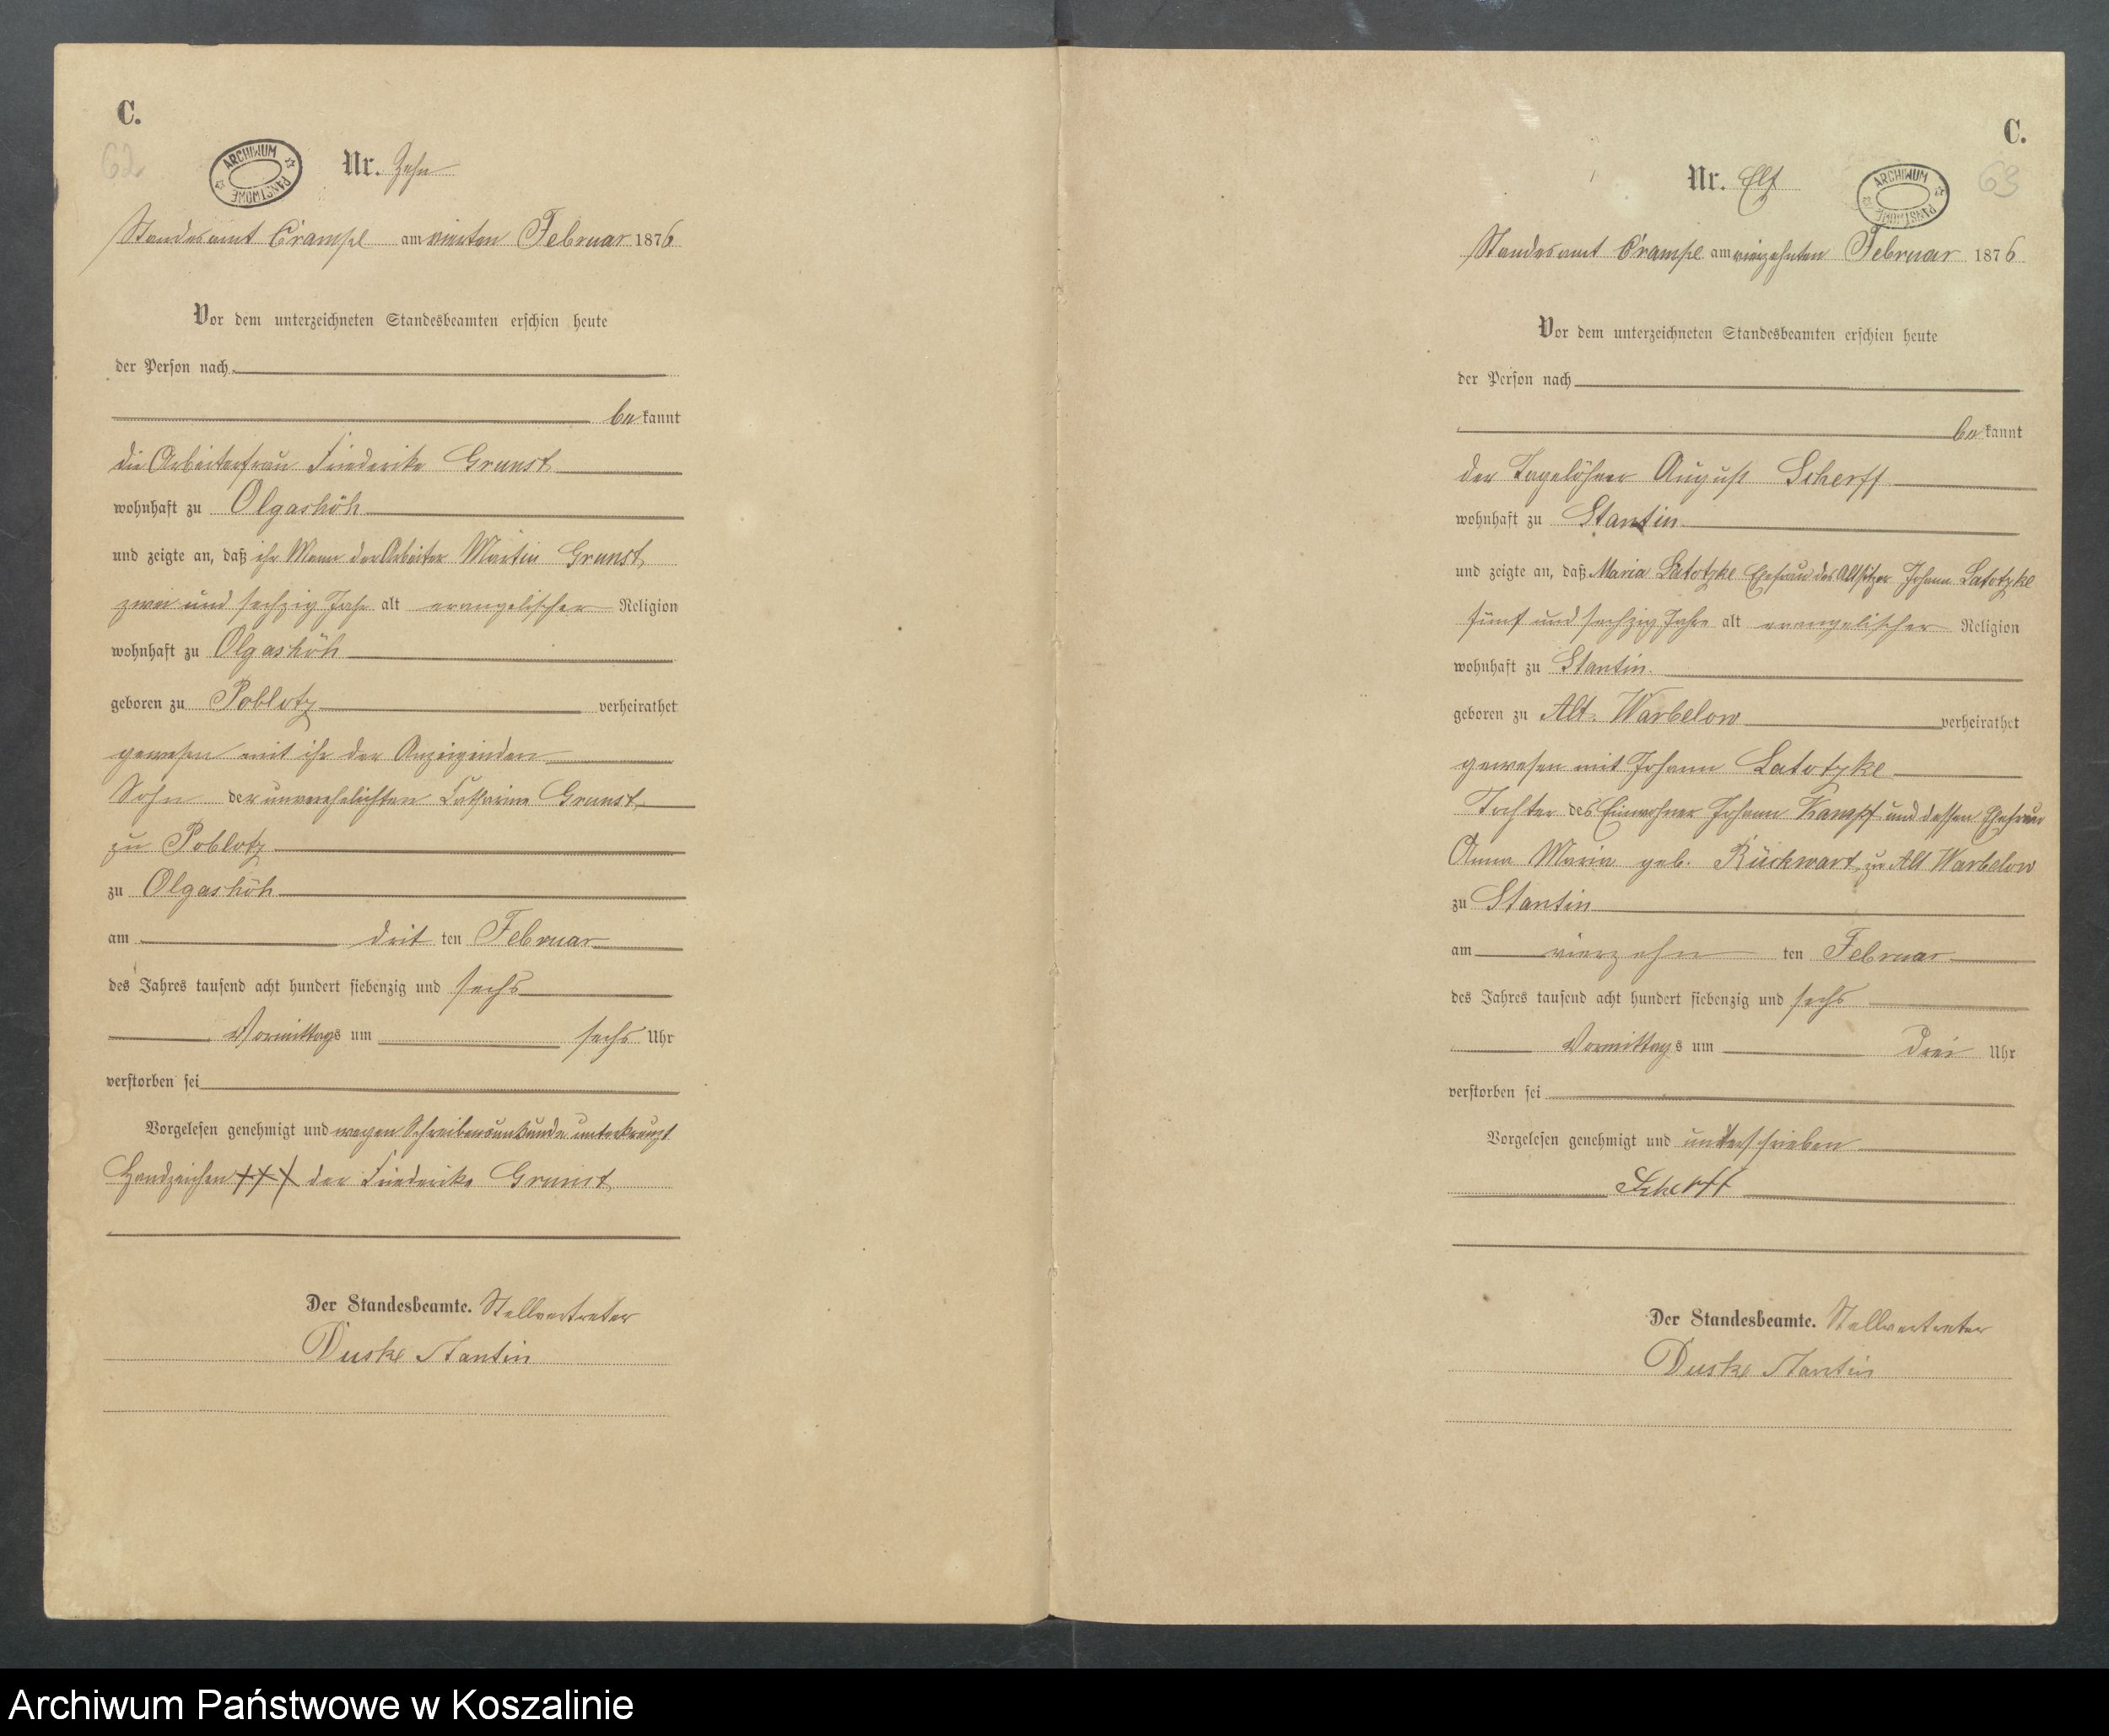 C.
62
ARCHIWUM PAŃSTWOWE
Nr. Zehn
Standesamt Crampe am vierten Februar 1876
Vor dem unterzeichneten Standesbeamten erschien heute
der Person nach
be kannt
die Arbeiterfrau Friederike Grunst
wohnhaft zu Olgashöh
und zeigte an, daß ihr Mann der Arbeiter Martin Grunst,
zwei und sechzig Jahr alt evangelischer Religion
wohnhaft zu Olgashöh
geboren zu Poblotz verheirathet
gewesen mit ihr der Anzeigenden
Sohn der unverehelichten Catharine Grunst
zu Poblotz
zu Olgashöh
am drit ten Februar
des Jahres tausend acht hundert siebenzig und sechs
Vormittags um sechs Uhr
verstorben sei
Vorgelesen genehmigt und wegen Schreibensunkunde unterkreuzt
Handzeichen +++ der Friederike Grunst
Der Standesbeamte. Stellvertreter
Duske Stantin
C.
63
ARCHIWUM PAŃSTWOWE
Nr. Elf
Standesamt Crampe am vierzehnten Februar 1876
Vor dem unterzeichneten Standesbeamten erschien heute
der Person nach
be kannt
der Tagelöhner August Scherff
wohnhaft zu Stantin
und zeigte an, daß Maria Latotzke Ehefrau des Altsitzer Johann Latotzke
fünf und sechzig Jahre alt evangelischer Religion
wohnhaft zu Stantin.
geboren zu Alt. Warbelow verheirathet
gewesen mit Johann Latotzke
Tochter des Einwohner Johann Kampf und dessen Ehefrau
Anna Maria geb. Rückwart zu Alt Warbelow
zu Stantin
am vierzehn ten Februar
des Jahres tausend acht hundert siebenzig und sechs
Vormittags um Drei Uhr
verstorben sei
Vorgelesen genehmigt und unterschrieben
Scherff
Der Standesbeamte. Stellvertreter
Duske Stantin
Archiwum Państwowe w Koszalinie